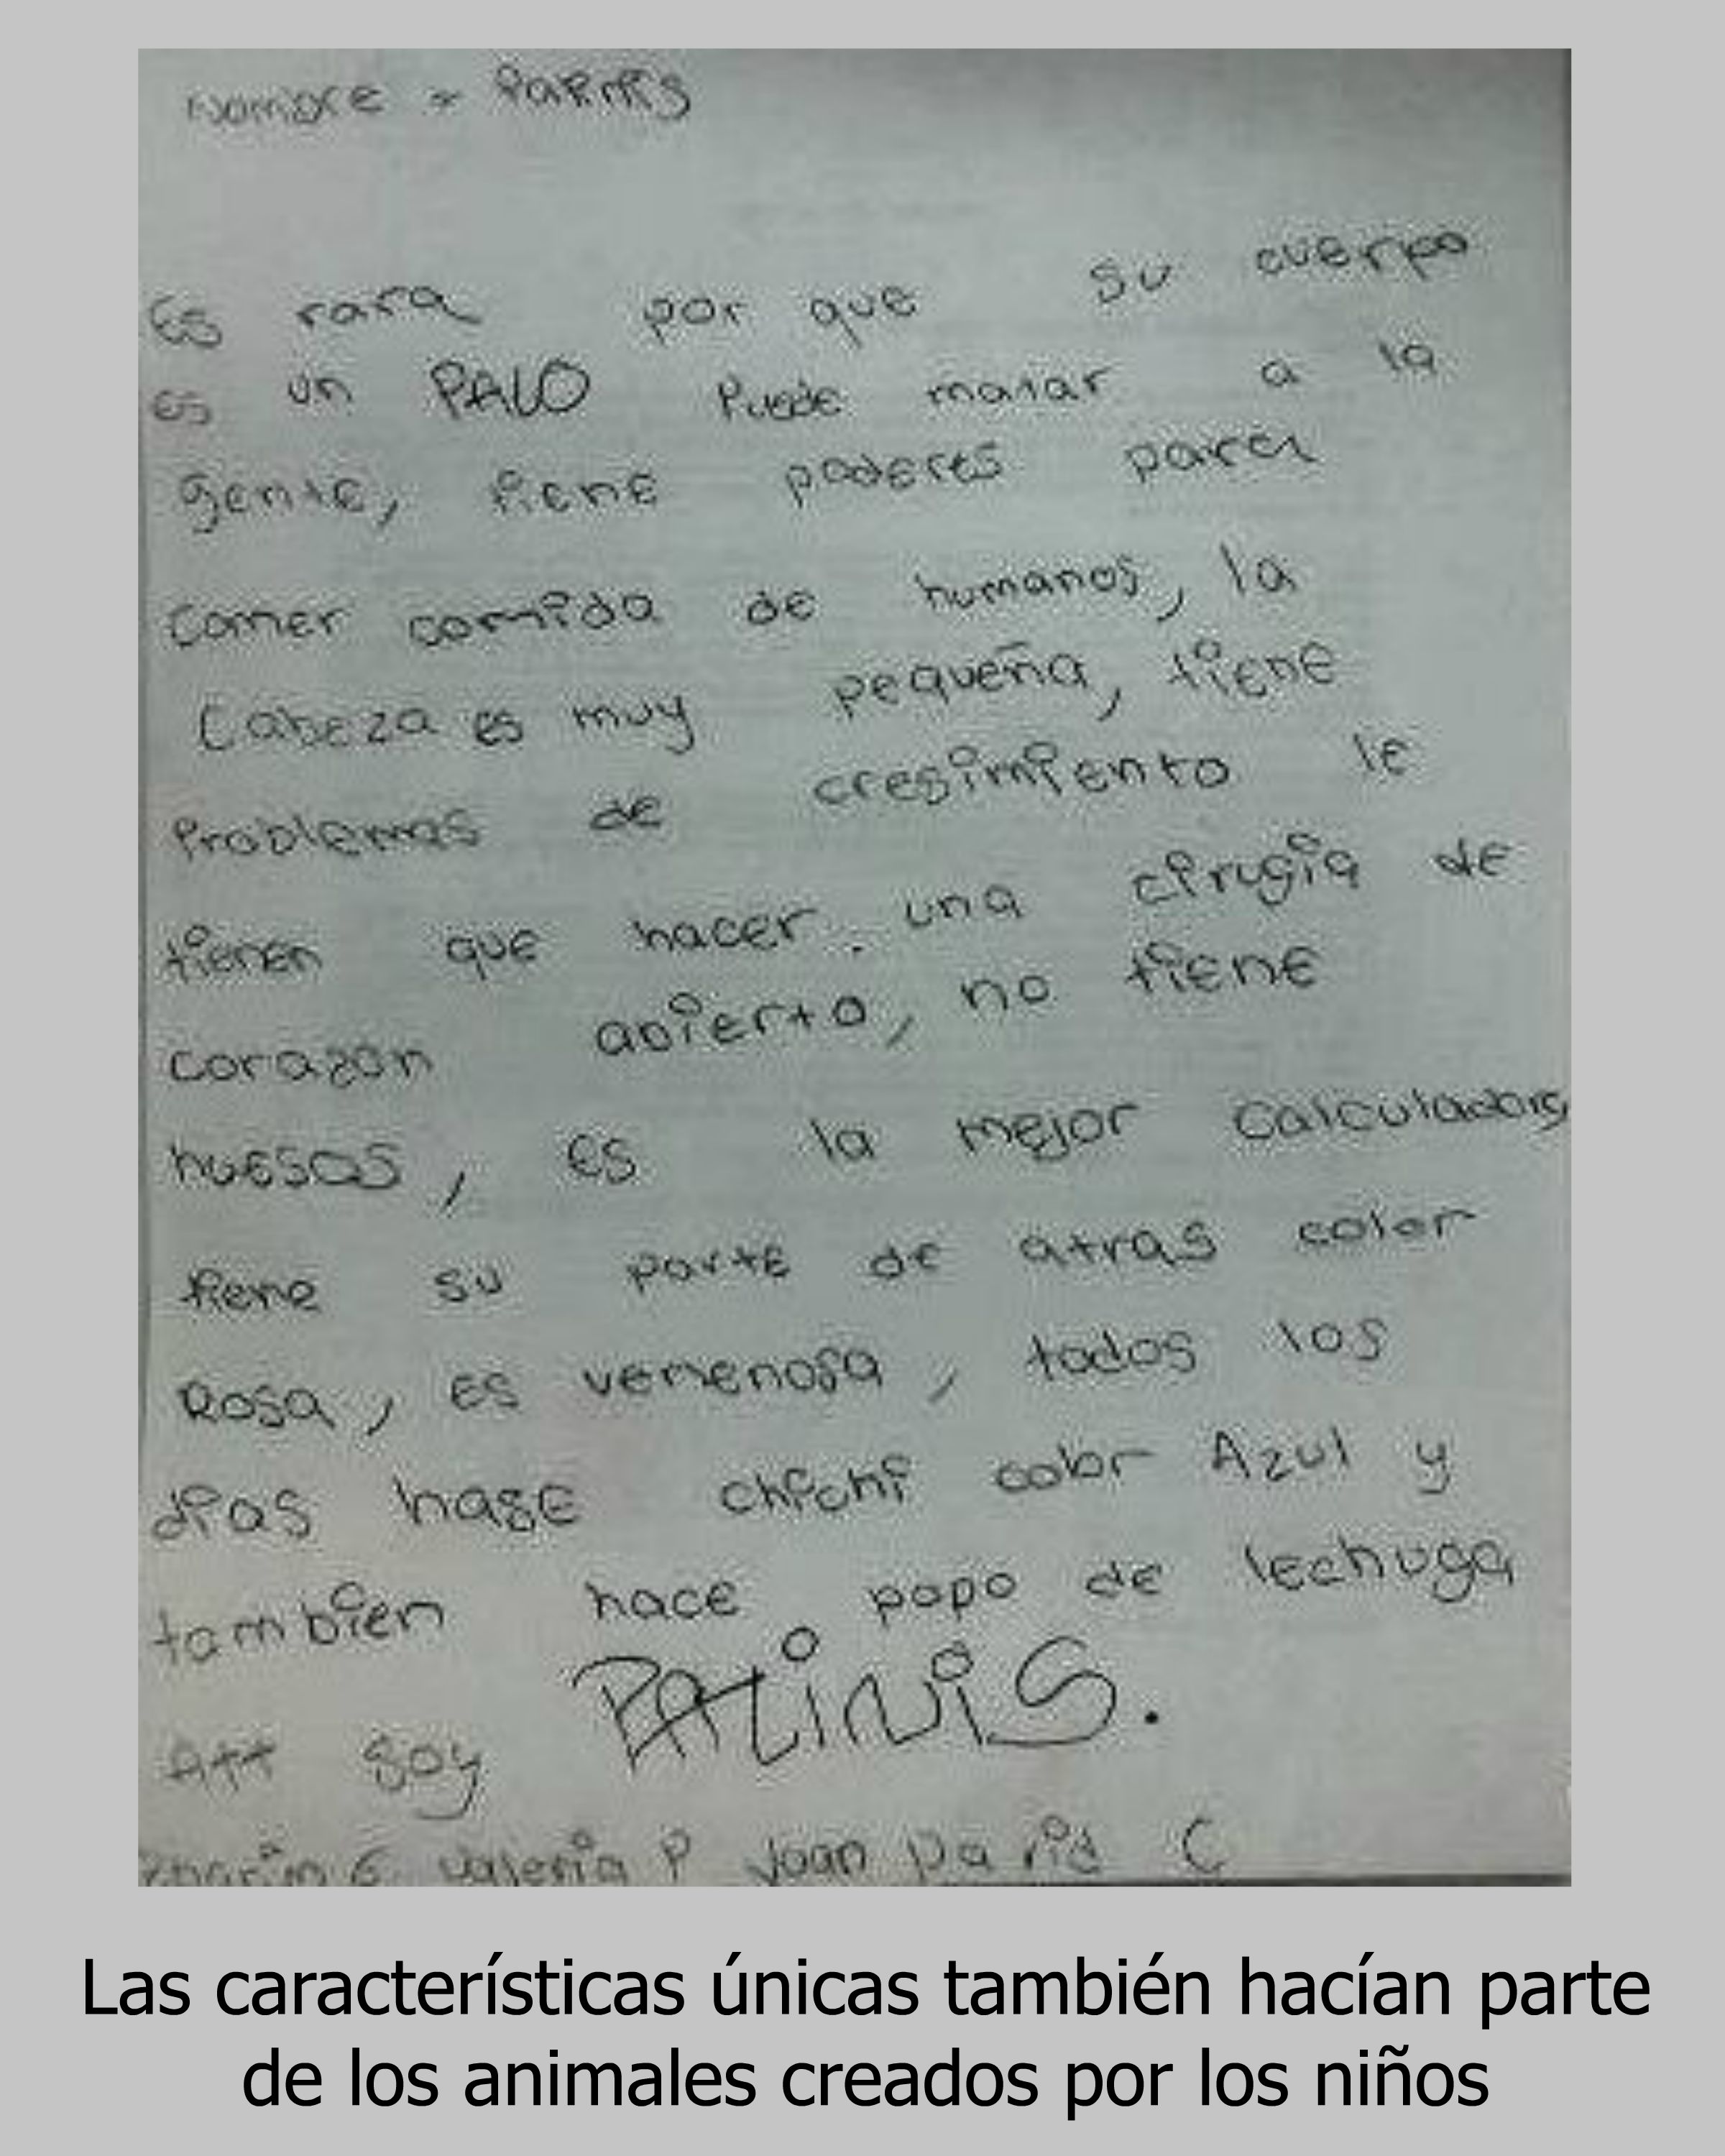 Nombre =
Es rara por que su cuerpo
es un PALO Puede matar a la
gente, tiene poderes para
comer comida de humanos, la
Cabeza es muy pequeña, tiene
Problemas de cresimiento le
tienen que hacer. una cirugia de
corazon abierto, no tiene
huesos, es la mejor calculadora
tiene su parte de atras color
Rosa, es venenosa, todos los
dias hase chichi color Azul y
tambien hace popo de lechuga
Att soy PALiNiS.
Valeria P Joan David C
Las características únicas también hacían parte
de los animales creados por los niños